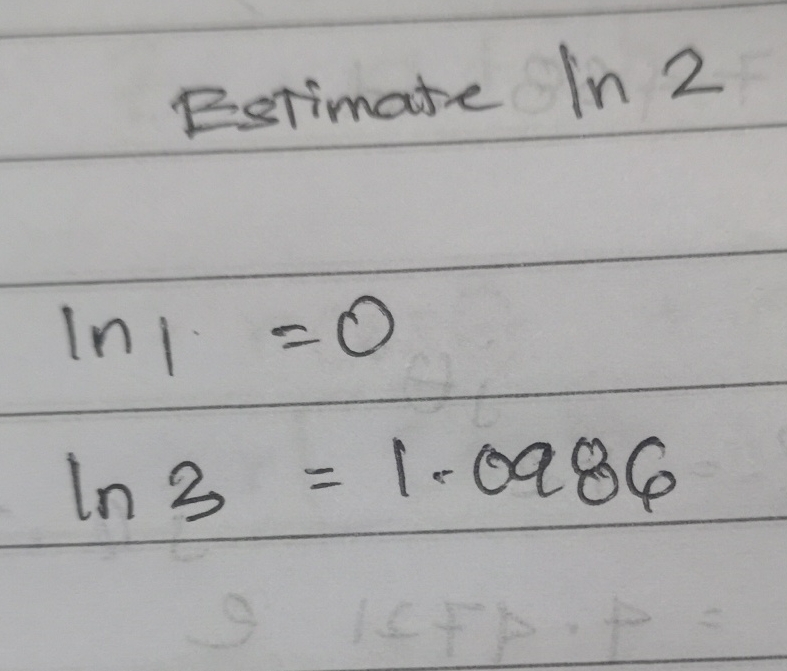 Estimate ln 2
ln 1 = 0
ln 3 = 1.0986